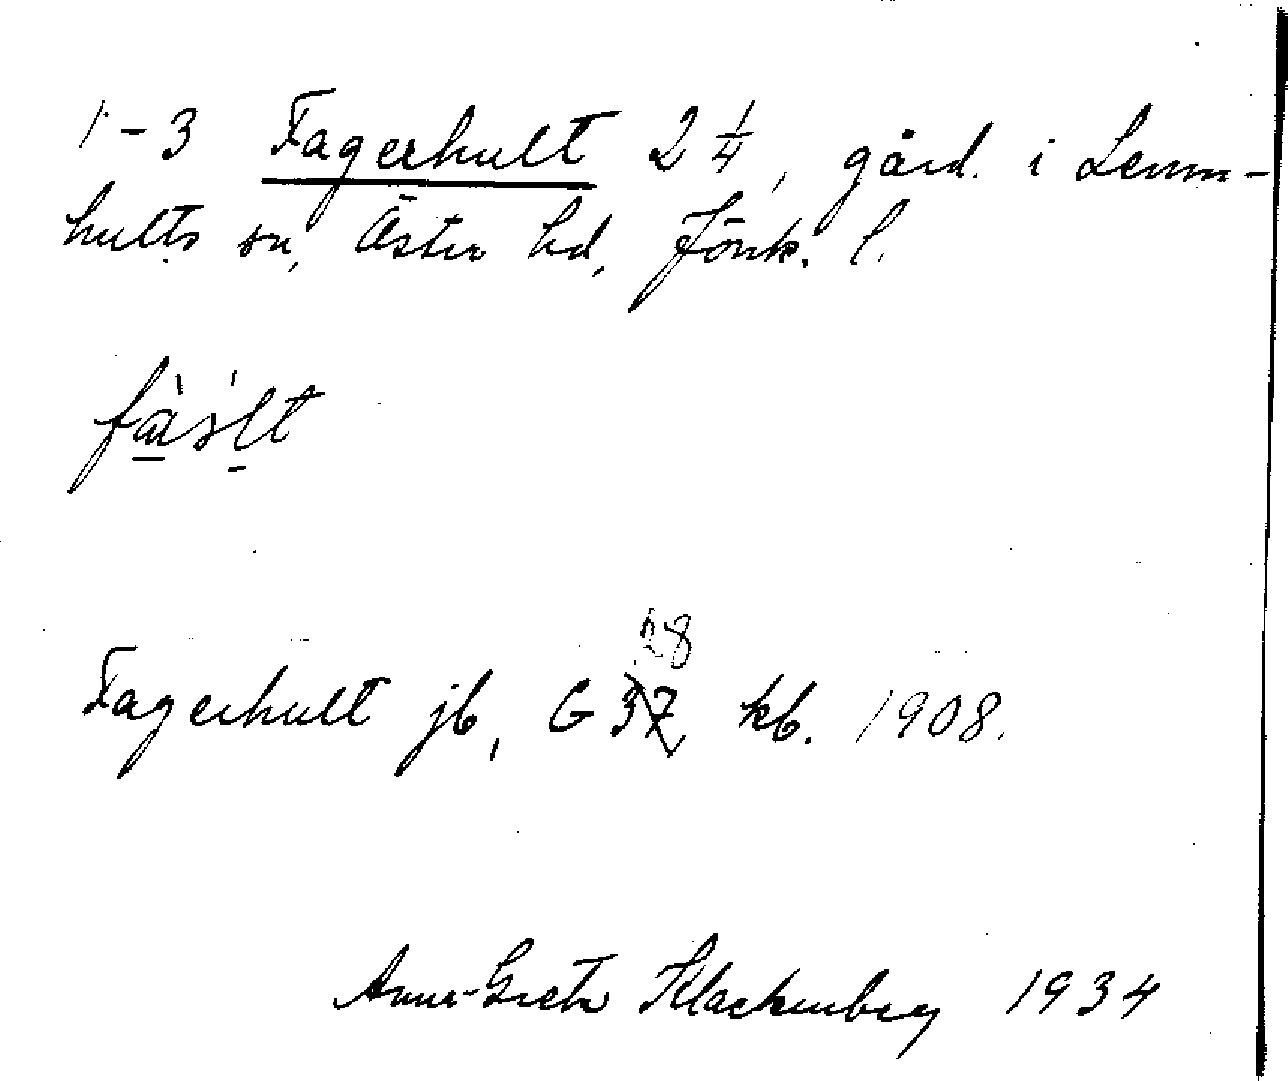 1-3 Fagerhult 2 1/4, gård. i Lemn-
hults sn, Öster hd, Jönk. l.
28
Fagerhult jb, G 37 kb. 1908.
Anna-Greta Klackenberg 1934